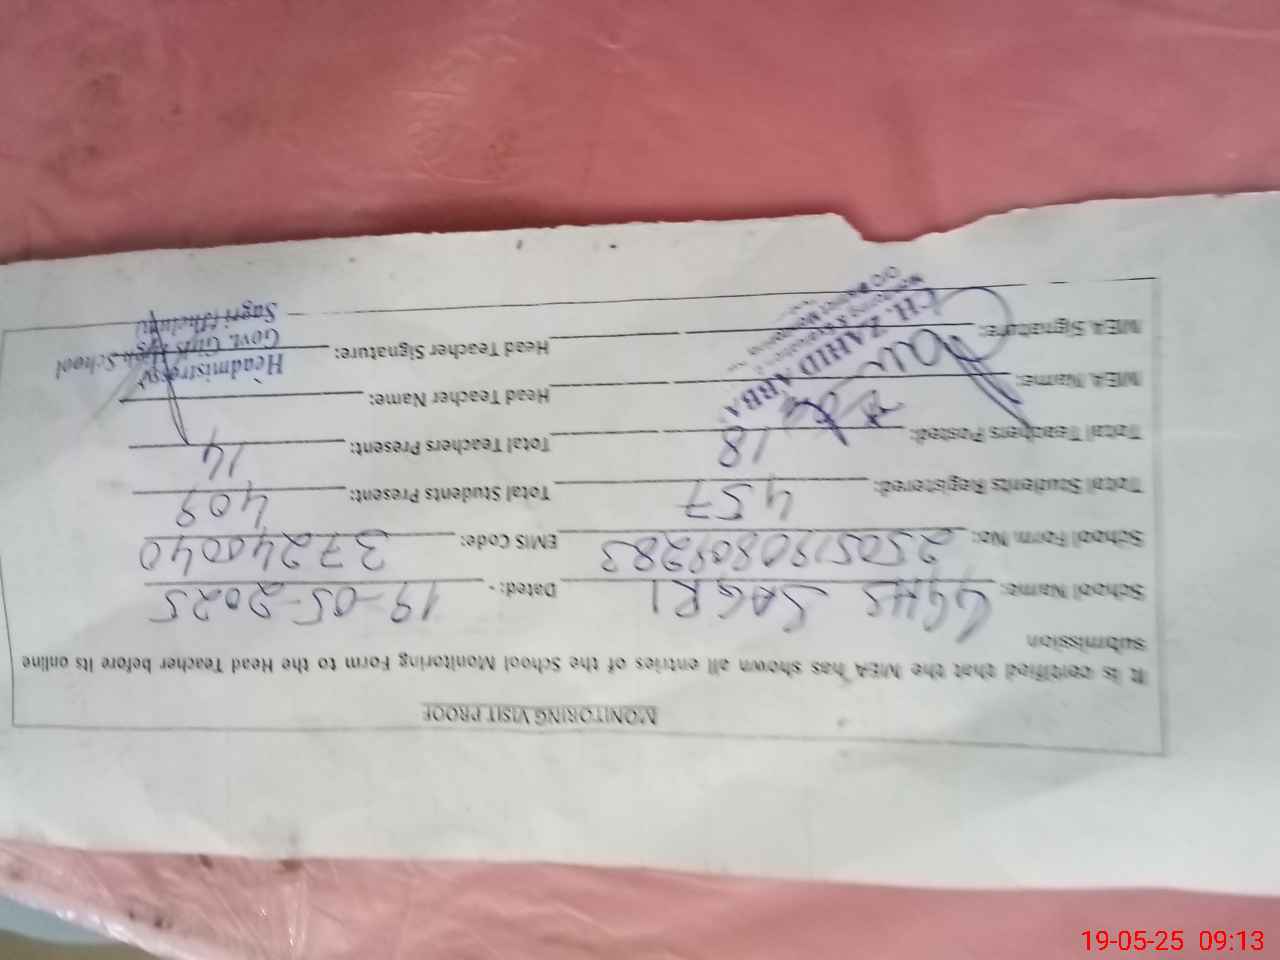 MONITORING VISIT PROOF
It is certified that the MEA has shown all entries of the School Monitoring Form to the Head Teacher before its online
submission
School Name: GGHS SAGRI Dated: - 19-05-2025
School Form No: 2505190809283 EMIS Code: 37240040
Total Students Registered: 457 Total Students Present: 409
Total Teachers Posted: 18 Total Teachers Present: 14
MEA Name: Head Teacher Name:
MEA Signature: Head Teacher Signature:
CH. ZAHID ABBA
Headmistress
Govt. Girls High School
Sagri (Jhelum)
19-05-25 09:13